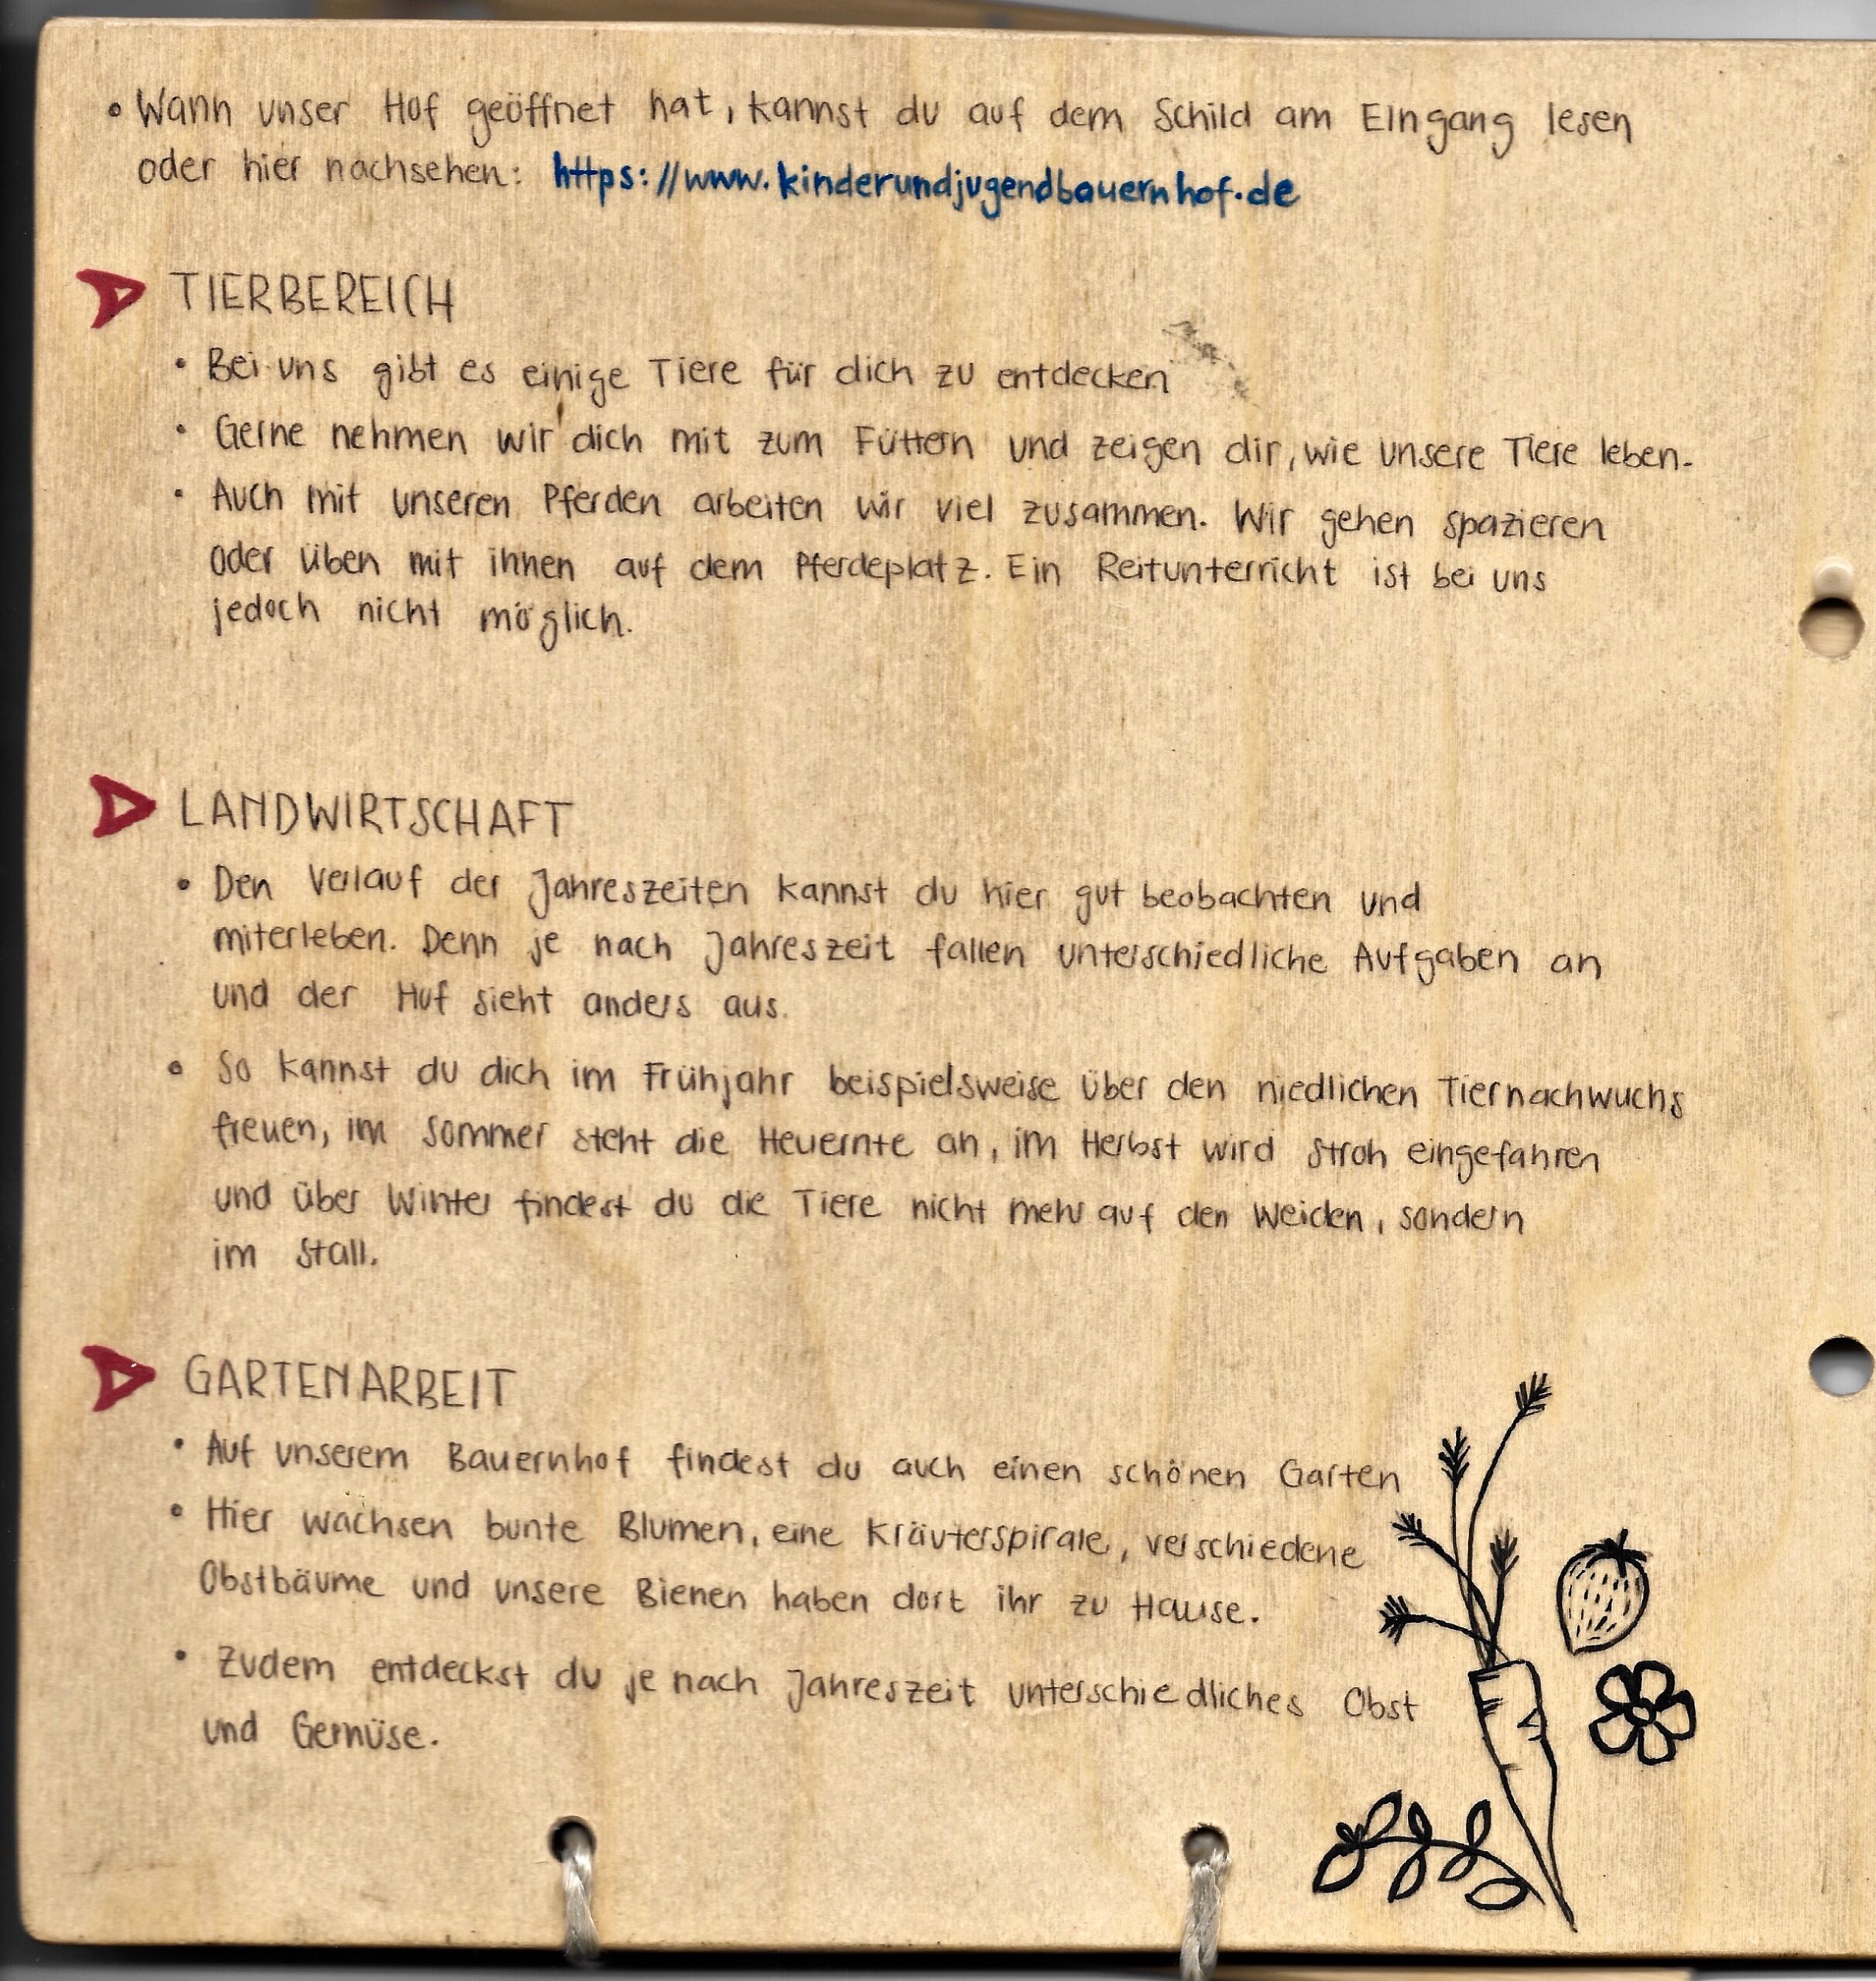 • Wann unser Hof geöffnet hat, kannst du auf dem Schild am Eingang lesen
oder hier nachsehen: https://www.kinderundjugendbauernhof.de
TIERBEREICH
• Bei uns gibt es einige Tiere für dich zu entdecken
• Gerne nehmen wir dich mit zum Füttern und zeigen dir, wie unsere Tiere leben.
• Auch mit unseren Pferden arbeiten wir viel zusammen. Wir gehen spazieren
oder üben mit ihnen auf dem Pferdeplatz. Ein Reitunterricht ist bei uns
jedoch nicht möglich.
LANDWIRTSCHAFT
• Den Verlauf der Jahreszeiten kannst du hier gut beobachten und
miterleben. Denn je nach Jahreszeit fallen unterschiedliche Aufgaben an
und der Hof sieht anders aus.
• So kannst du dich im Frühjahr beispielsweise über den niedlichen Tiernachwuchs
freuen, im Sommer steht die Heuernte an, im Herbst wird Stroh eingefahren
und über Winter findest du die Tiere nicht mehr auf den Weiden, sondern
im Stall.
GARTENARBEIT
• Auf unserem Bauernhof findest du auch einen schönen Garten
• Hier wachsen bunte Blumen, eine Kräuterspirale, verschiedene
Obstbäume und unsere Bienen haben dort ihr zu Hause.
• Zudem entdeckst du je nach Jahreszeit unterschiedliches Obst
und Gemüse.